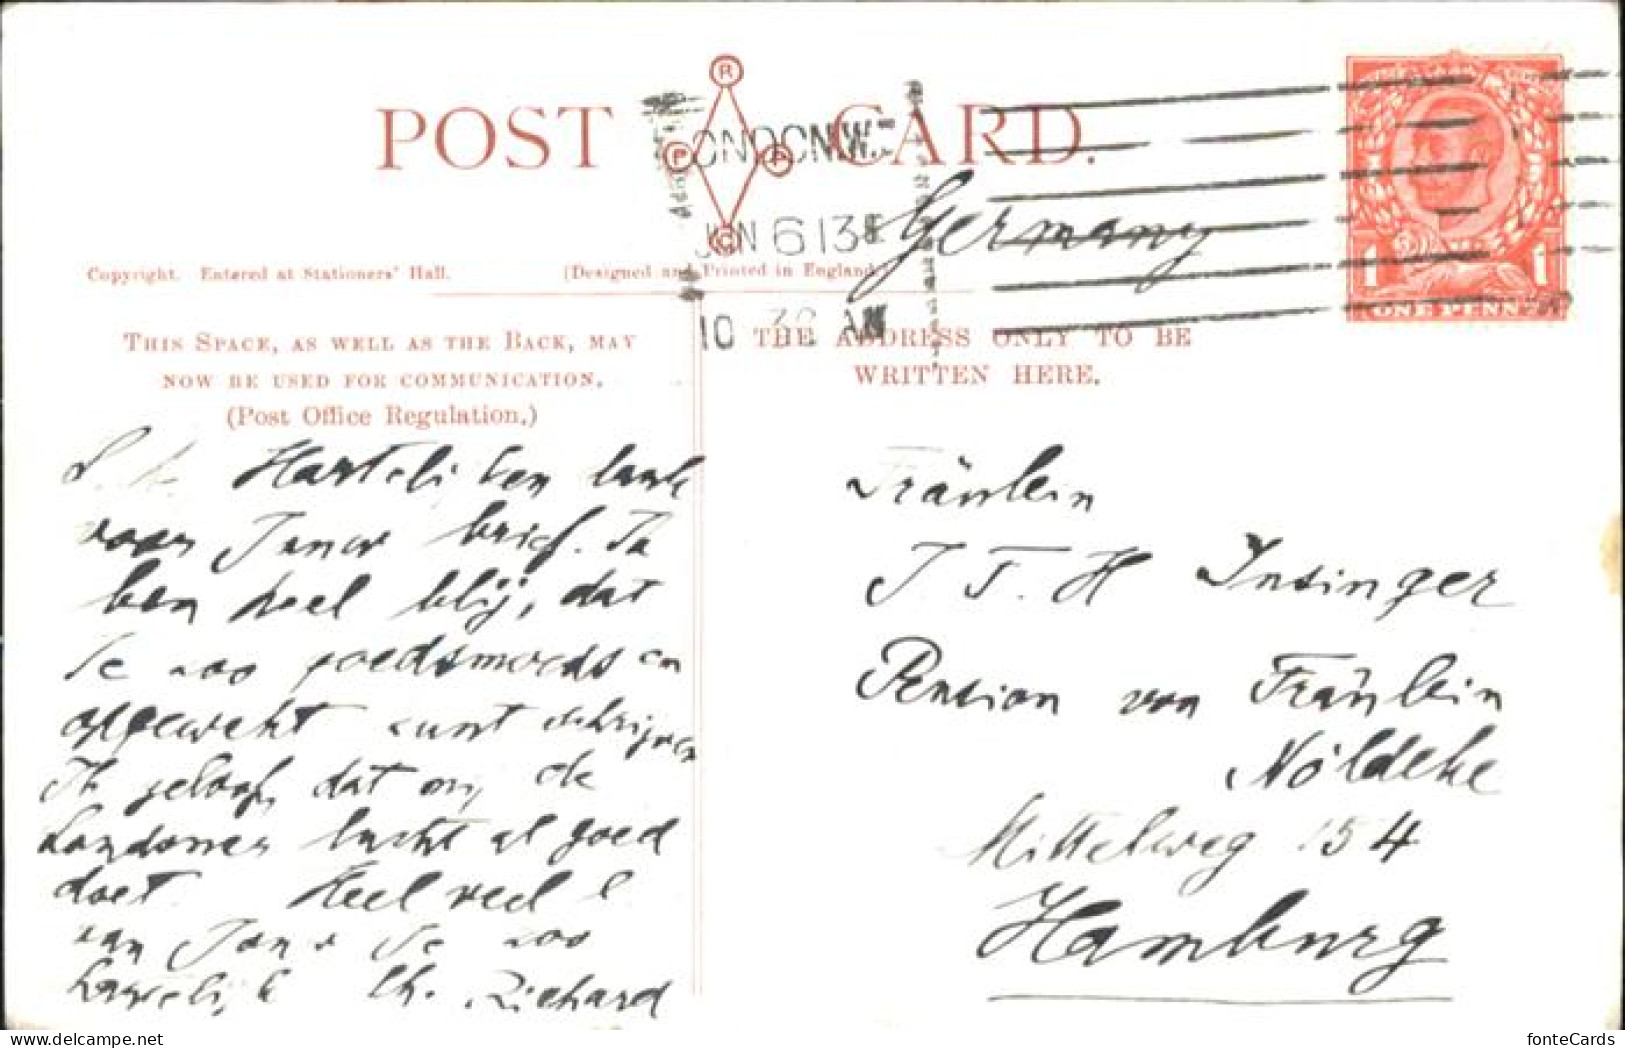 POST CARD.
R
P A
C
LONDON N.W.
JUN 6 13
10 30 AM
ONE PENNY
1 1
Germany
Copyright. Entered at Stationers' Hall. (Designed and Printed in England
THIS SPACE, AS WELL AS THE BACK, MAY
NOW BE USED FOR COMMUNICATION.
(Post Office Regulation.)
THE ADDRESS ONLY TO BE
WRITTEN HERE.
Hartelijken dank
voor brief. Ik
ben heel blij, dat
Je zoo goedsmoeds en
opgewekt kunt schrijven
Ik geloof, dat mij de
Londonner lucht al goed
doet. Heel veel
van Je zoo
hartelijk Ch. Richard
Fräulein
J. F. H Insinger
Pension von Fräulein
Nöldeke
Mittelweg 154
Hamburg
fonteCards
www.delcampe.net